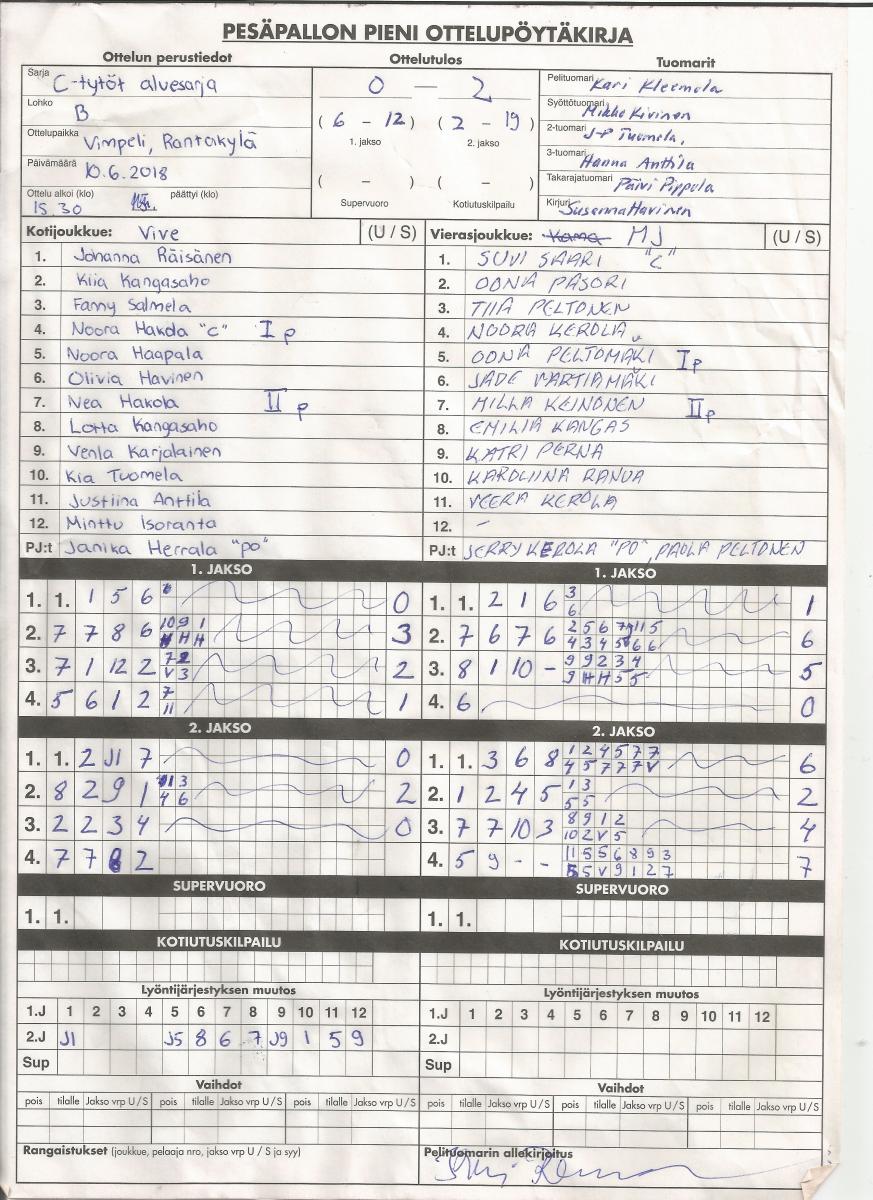 PESÄPALLON PIENI OTTELUPÖYTÄKIRJA
Ottelun perustiedot
Ottelutulos
Tuomarit
Sarja C-tytöt aluesarja
Lohko B
Ottelupaikka Vimpeli, Rantakylä
Päivämäärä 10.6.2018
Ottelu alkoi (klo) 15.30 päättyi (klo)
0 – 2
( 6 – 12 ) ( 2 – 19 )
1. jakso 2. jakso
( – ) ( – )
Supervuoro Kotiutuskilpailu
Pelituomari Kari Kleemola
Syöttötuomari Mikko Kivinen
2-tuomari J-P Tuomela,
3-tuomari Hanna Anttila
Takarajatuomari Päivi Pippola
Kirjuri Susanna Havinen
Kotijoukkue: Vive (U / S)
1. Johanna Räisänen
2. Kiia Kangasaho
3. Fanny Salmela
4. Noora Hakola "C" I p
5. Noora Haapala
6. Olivia Havinen
7. Nea Hakola II p
8. Lotta Kangasaho
9. Venla Karjalainen
10. Kia Tuomela
11. Justiina Anttila
12. Minttu Isoranta
PJ:t Janika Herrala "po"
Vierasjoukkue: Kama MJ (U / S)
1. SUVI SAARI "C"
2. OONA PASORI
3. TIIA PELTONEN
4. NOORA KEROLA
5. OONA PELTOMÄKI I p
6. JADE VARTIAMÄKI
7. MILLA KEINONEN II p
8. EMILIA KANGAS
9. KATRI PERNA
10. KAROLIINA RANUA
11. VEERA KEROLA
12. –
PJ:t JERRY KEROLA "PO", PAULA PELTONEN
1. JAKSO
1. 1. 1 5 6 0
2. 7 7 8 6 10 9 1 3
H H
3. 7 1 12 2 7 2
V 3
2
4. 5 6 1 2 7
11
1
1. JAKSO
1. 1. 2 1 6 3
6
1
2. 7 6 7 6 2 5 6 7 11 5
4 3 4 5 6 6
6
3. 8 1 10 – 9 9 2 3 4
9 H H 5 5
5
4. 6 0
2. JAKSO
1. 1. 2 J1 7 0
2. 8 2 9 1 1 3
4 6
2
3. 2 2 3 4 0
4. 7 7 8 2
2. JAKSO
1. 1. 3 6 8 1 2 4 5 7 7
4 5 7 7 7 V
6
2. 1 2 4 5 1 3
5 5
2
3. 7 7 10 3 8 9 1 2
10 2 V 5
4
4. 5 9 – – 11 5 5 6 8 9 3
5 5 V 9 1 2 7
7
SUPERVUORO
1. 1.
SUPERVUORO
1. 1.
KOTIUTUSKILPAILU
KOTIUTUSKILPAILU
Lyöntijärjestyksen muutos
1.J 1 2 3 4 5 6 7 8 9 10 11 12
2.J J1 J5 8 6 7 J9 1 5 9
Sup
Lyöntijärjestyksen muutos
1.J 1 2 3 4 5 6 7 8 9 10 11 12
2.J
Sup
Vaihdot
pois tilalle Jakso vrp U / S pois tilalle Jakso vrp U / S pois tilalle Jakso vrp U / S
Vaihdot
pois tilalle Jakso vrp U / S pois tilalle Jakso vrp U / S pois tilalle Jakso vrp U / S
Rangaistukset (joukkue, pelaaja nro, jakso vrp U / S ja syy)
Pelituomarin allekirjoitus